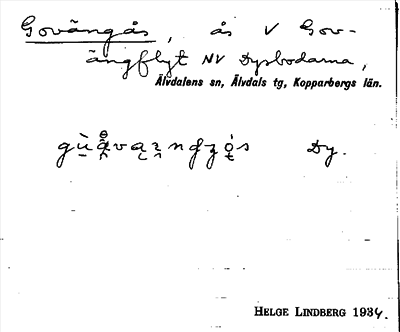 Govängås, ås V Gov-
ängflyt NV Dysbodarna,
Älvdalens sn, Älvdals tg, Kopparbergs län.
Dy.
HELGE LINDBERG 1934.